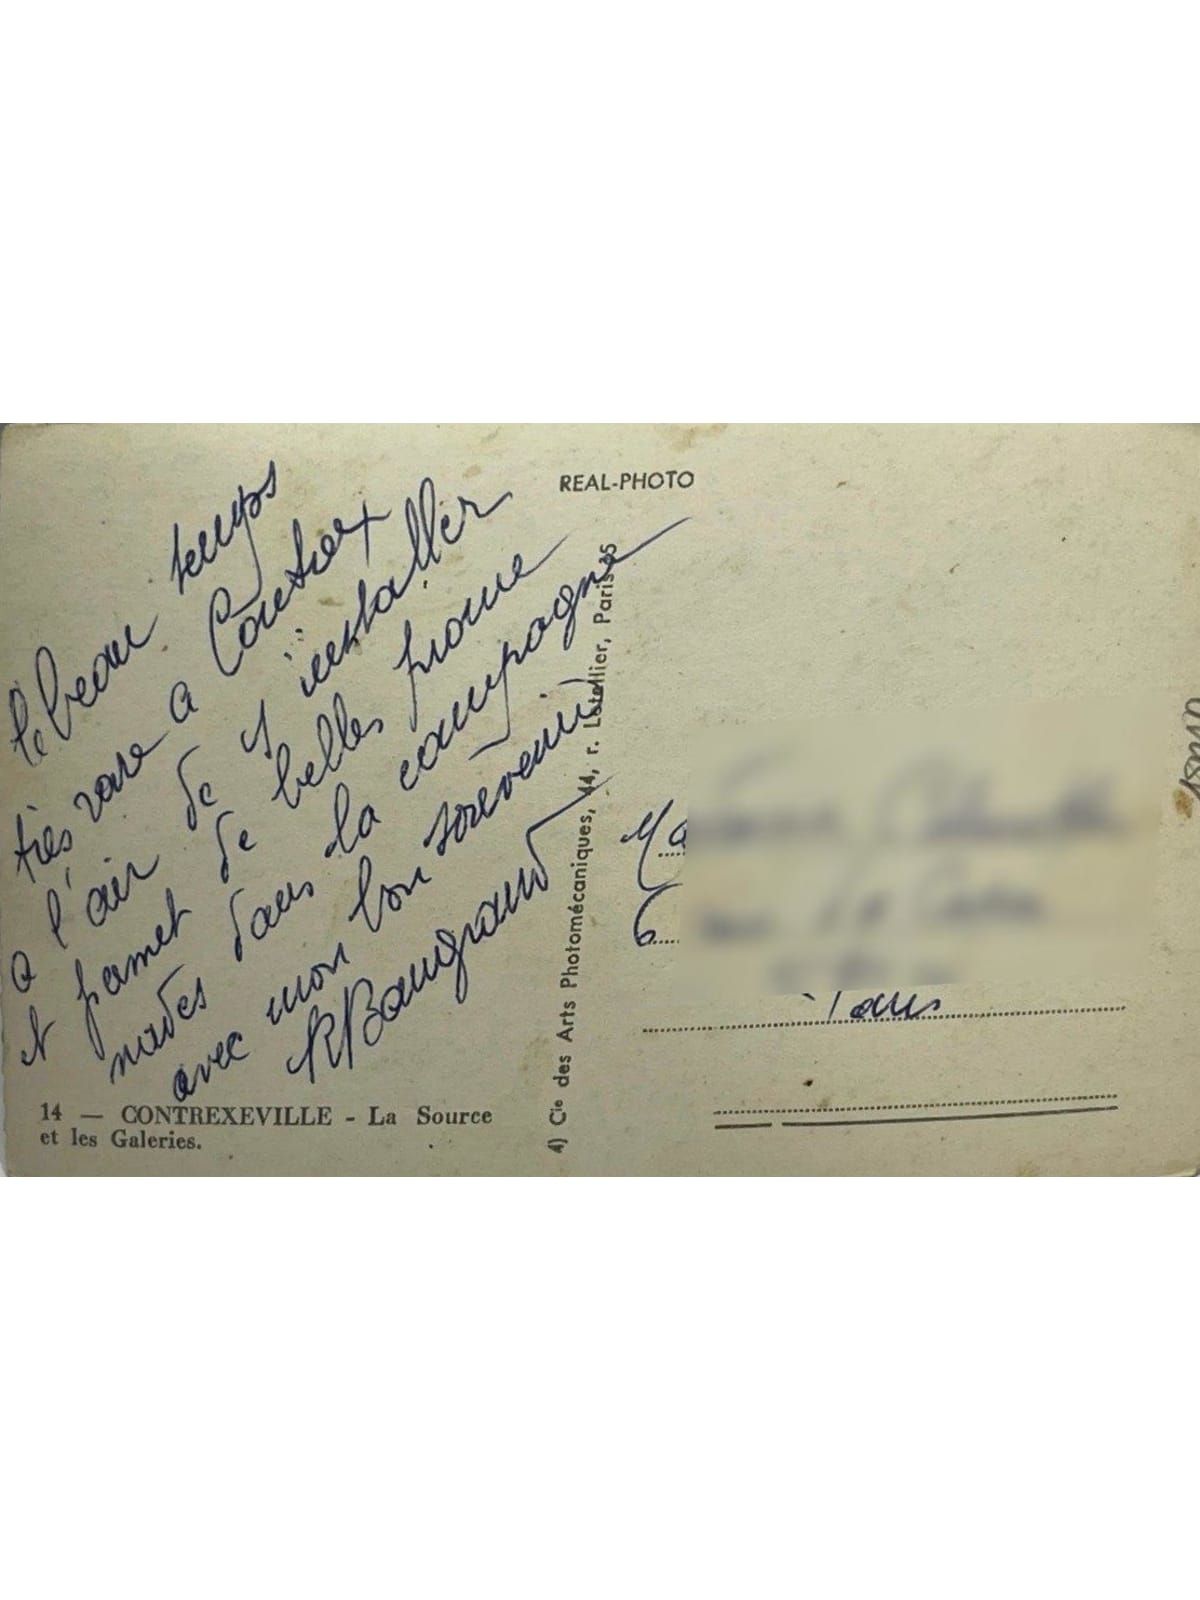 le beau temps
très rare a Contrex
a l'air de s'y installer
et permet de belles prome
nades dans la campagne
avec mon bon souvenir
RBaugrand
14 — CONTREXEVILLE - La Source
et les Galeries.
REAL-PHOTO
4) Cie des Arts Photomécaniques, 44, r. Letellier, Paris-15
Ma
6
Paris